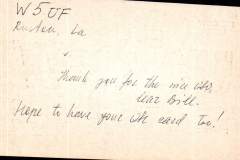 W5UF
Ruston, La
Thank you for the nice QSO,
dear Bill.
Hope to have your QSL card too!